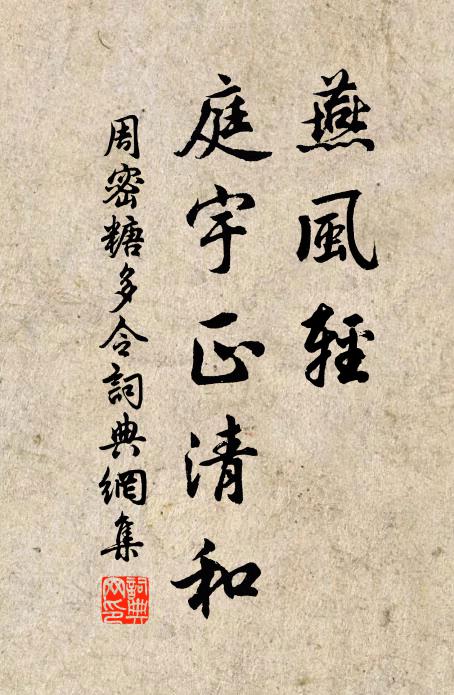 燕風輕
庭宇正清和
周密糖多令詞典網集
詞典网印